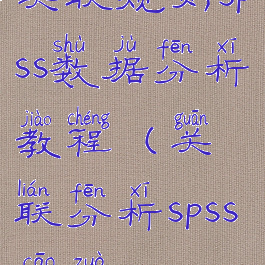 SS数据分析
shù jù fēn xī
教程(关
jiào chéng guān
联分析SPSS
lián fēn xī
cāo zuò